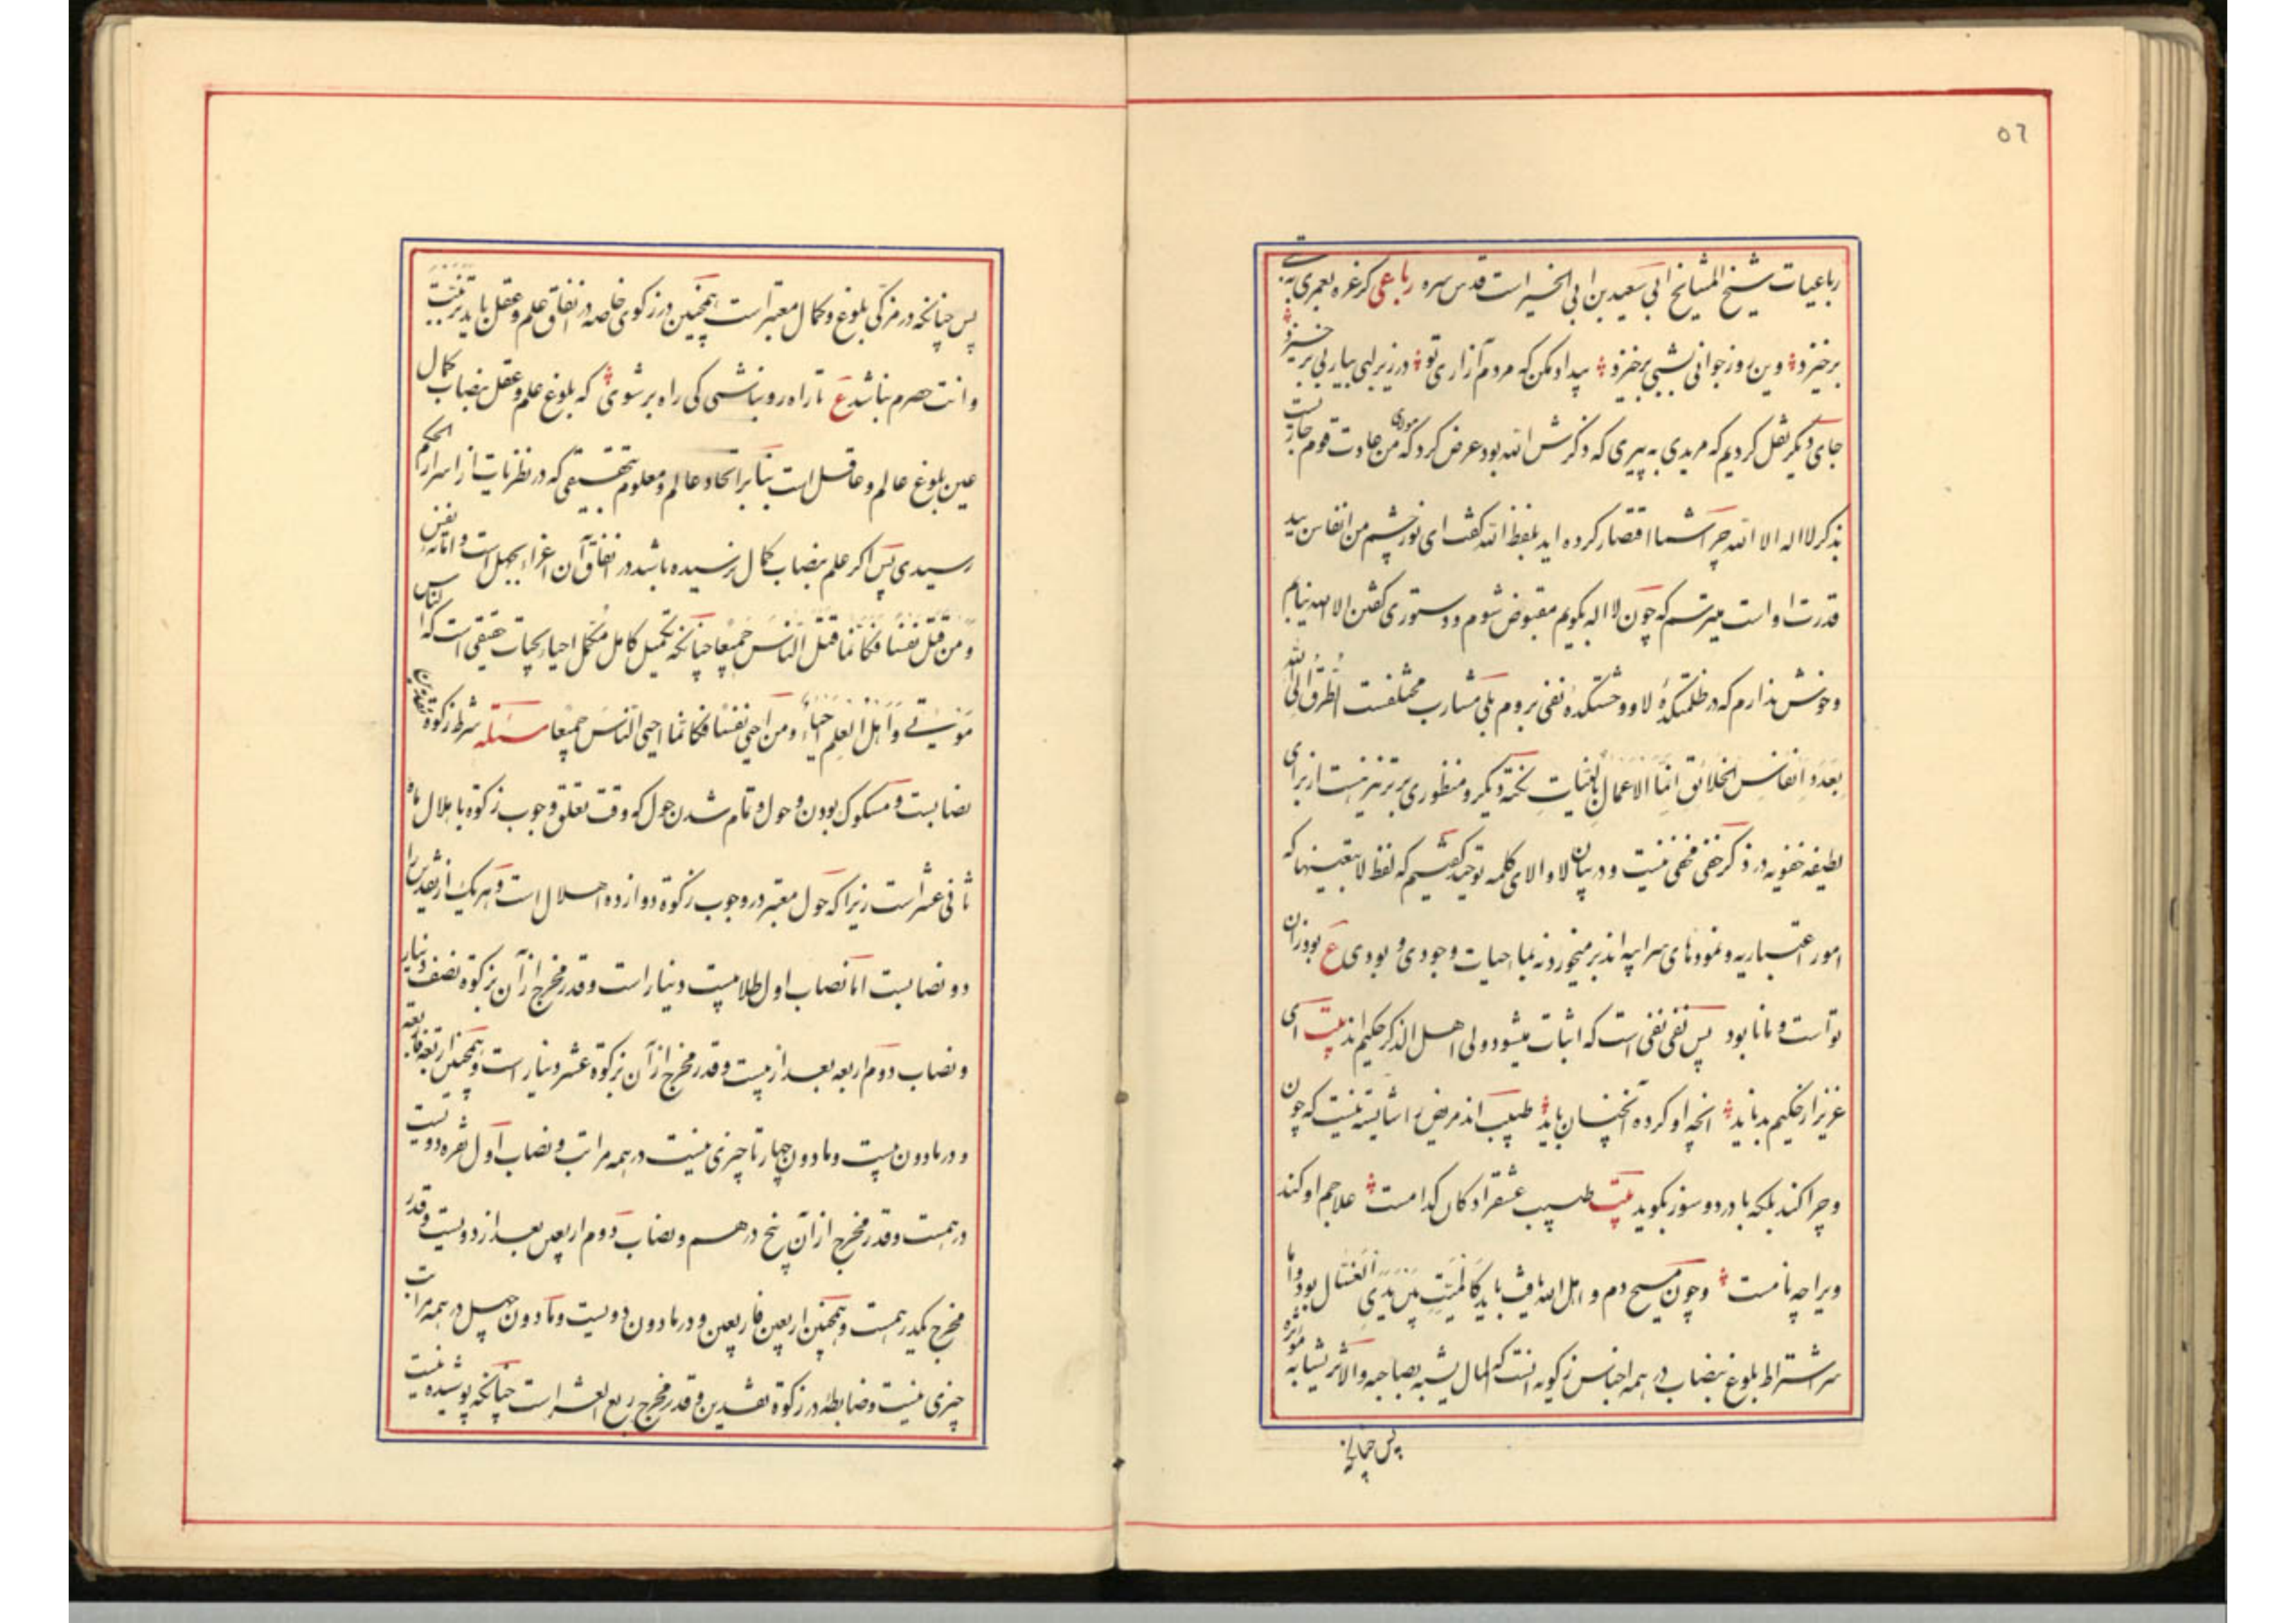 ٥٦
رباعیات شیخ المشایخ ابی سعید بن ابی الخیر است قدس سره رباعی کر غره بعمری به تبی
برخیزد وین روز جوانی بشبی برخیزد بیداد مکن که مردم آزاری تو در زیر لبی بیاربی برخیزد
جای دیگر نقل کردیم که مریدی به پیری که ذکرش الله بود عرض کرد که مولای من عادت قوم جاریست
بذکر لا اله الا الله چرا شما اقتصار کرده اید بلفظ الله گفت ای نور چشم من انفاس بید
قدرت او است میترسم که چون لا اله بگویم مقبوض شوم و دستوری گفتن الا الله نیابم
و خوش ندارم که در ظلمتکدهٔ لا و وحشتکدهٔ نفی بروم بلی مشارب مختلفست الطرق الی الله
بعدد انفاس الخلائق انما الاعمال بالنیات نکته دیگر و منظوری برتر نیز هست از برای
لطیفه خفویه در ذکر خفی مخفی نیست و در بیان لا و الای کلمه توحید گفتیم که لفظ لا بتعینها که
امور اعتباریه و نمودهای سرابیه اند بر میخورد نه بماحیات وجودی و بودی ع بود زان
تو است و مانا بود پس نفی نفی است که اثبات میشود ولی اهل الذکر حکیم اند بیت ای
عزیز از حکیم بد ناید آنچه او کرده آنچنان باید طبیب اند مریض را شایسته نیست که چون
و چرا کند بلکه با درد و سوز بگوید بیت طبیب عشقرا دکان کدامست علاجم او کند
ویرا چه نامست و چون مسیح دم و اهل الله یافت باید کالمیت بین یدی الغسال بود و اما
سر اشتراط بلوغ بنصاب در همه اجناس زکویه آنست که المال یشبه بصاحبه والاثر یشابه مؤثره
پس چنانکه
پس چنانکه در مزکی بلوغ و کمال معتبر است همچنین در زکوی خاصه در انفاق علم و عقل باید تزبّبت
و انت حصرم نباشد ع تا راه رو نباشی کی راه بر شوی که بلوغ علم و عقل بنصاب کمال
عین بلوغ عالم و عاقل است بنا بر اتحاد عالم و معلوم بتحقیقی که در نظریات از اسرار الحکم
رسیدی پس اگر علم بنصاب کمال نرسیده باشد در انفاق آن اغراء بجهل است و اماته نفس
و من قتل نفسا فکانما قتل الناس جمیعا چنانکه تکمیل کامل مکمل احیاء بحیات حقیقی است که الناس
موتی و اهل العلم احیاء و من احیی نفسا فکانما احیی الناس جمیعا مسئله شرط زکوة نقدین
نصابست و مسکوک بودن و حول و تمام شدن حول که وقت تعلق وجوب زکوة با هلال ماه
ثانی عشر است زیرا که حول معتبر در وجوب زکوة دوازده هلال است و هر یک از نقدین را
دو نصابست اما نصاب اول طلا بیست دینار است و قدر مخرج از آن بزکوة نصف دینار
و نصاب دوم اربعه بعد از بیست و قدر مخرج از آن بزکوة عشر دینار است و همچنین اربعه فاربعه
و در مادون بیست و مادون چهار تا چیزی نیست در همه مراتب و نصاب اول نقره دویست
درهمست و قدر مخرج از آن پنج درهم و نصاب دوم اربعین بعد از دویست و قدر
مخرج یکدرهمست و همچنین اربعین فاربعین و در مادون دویست و مادون چهل در همه مراتب
چیزی نیست و ضابطه در زکوة نقدین و قدر مخرج ربع العشر است چنانکه پوشیده نیست